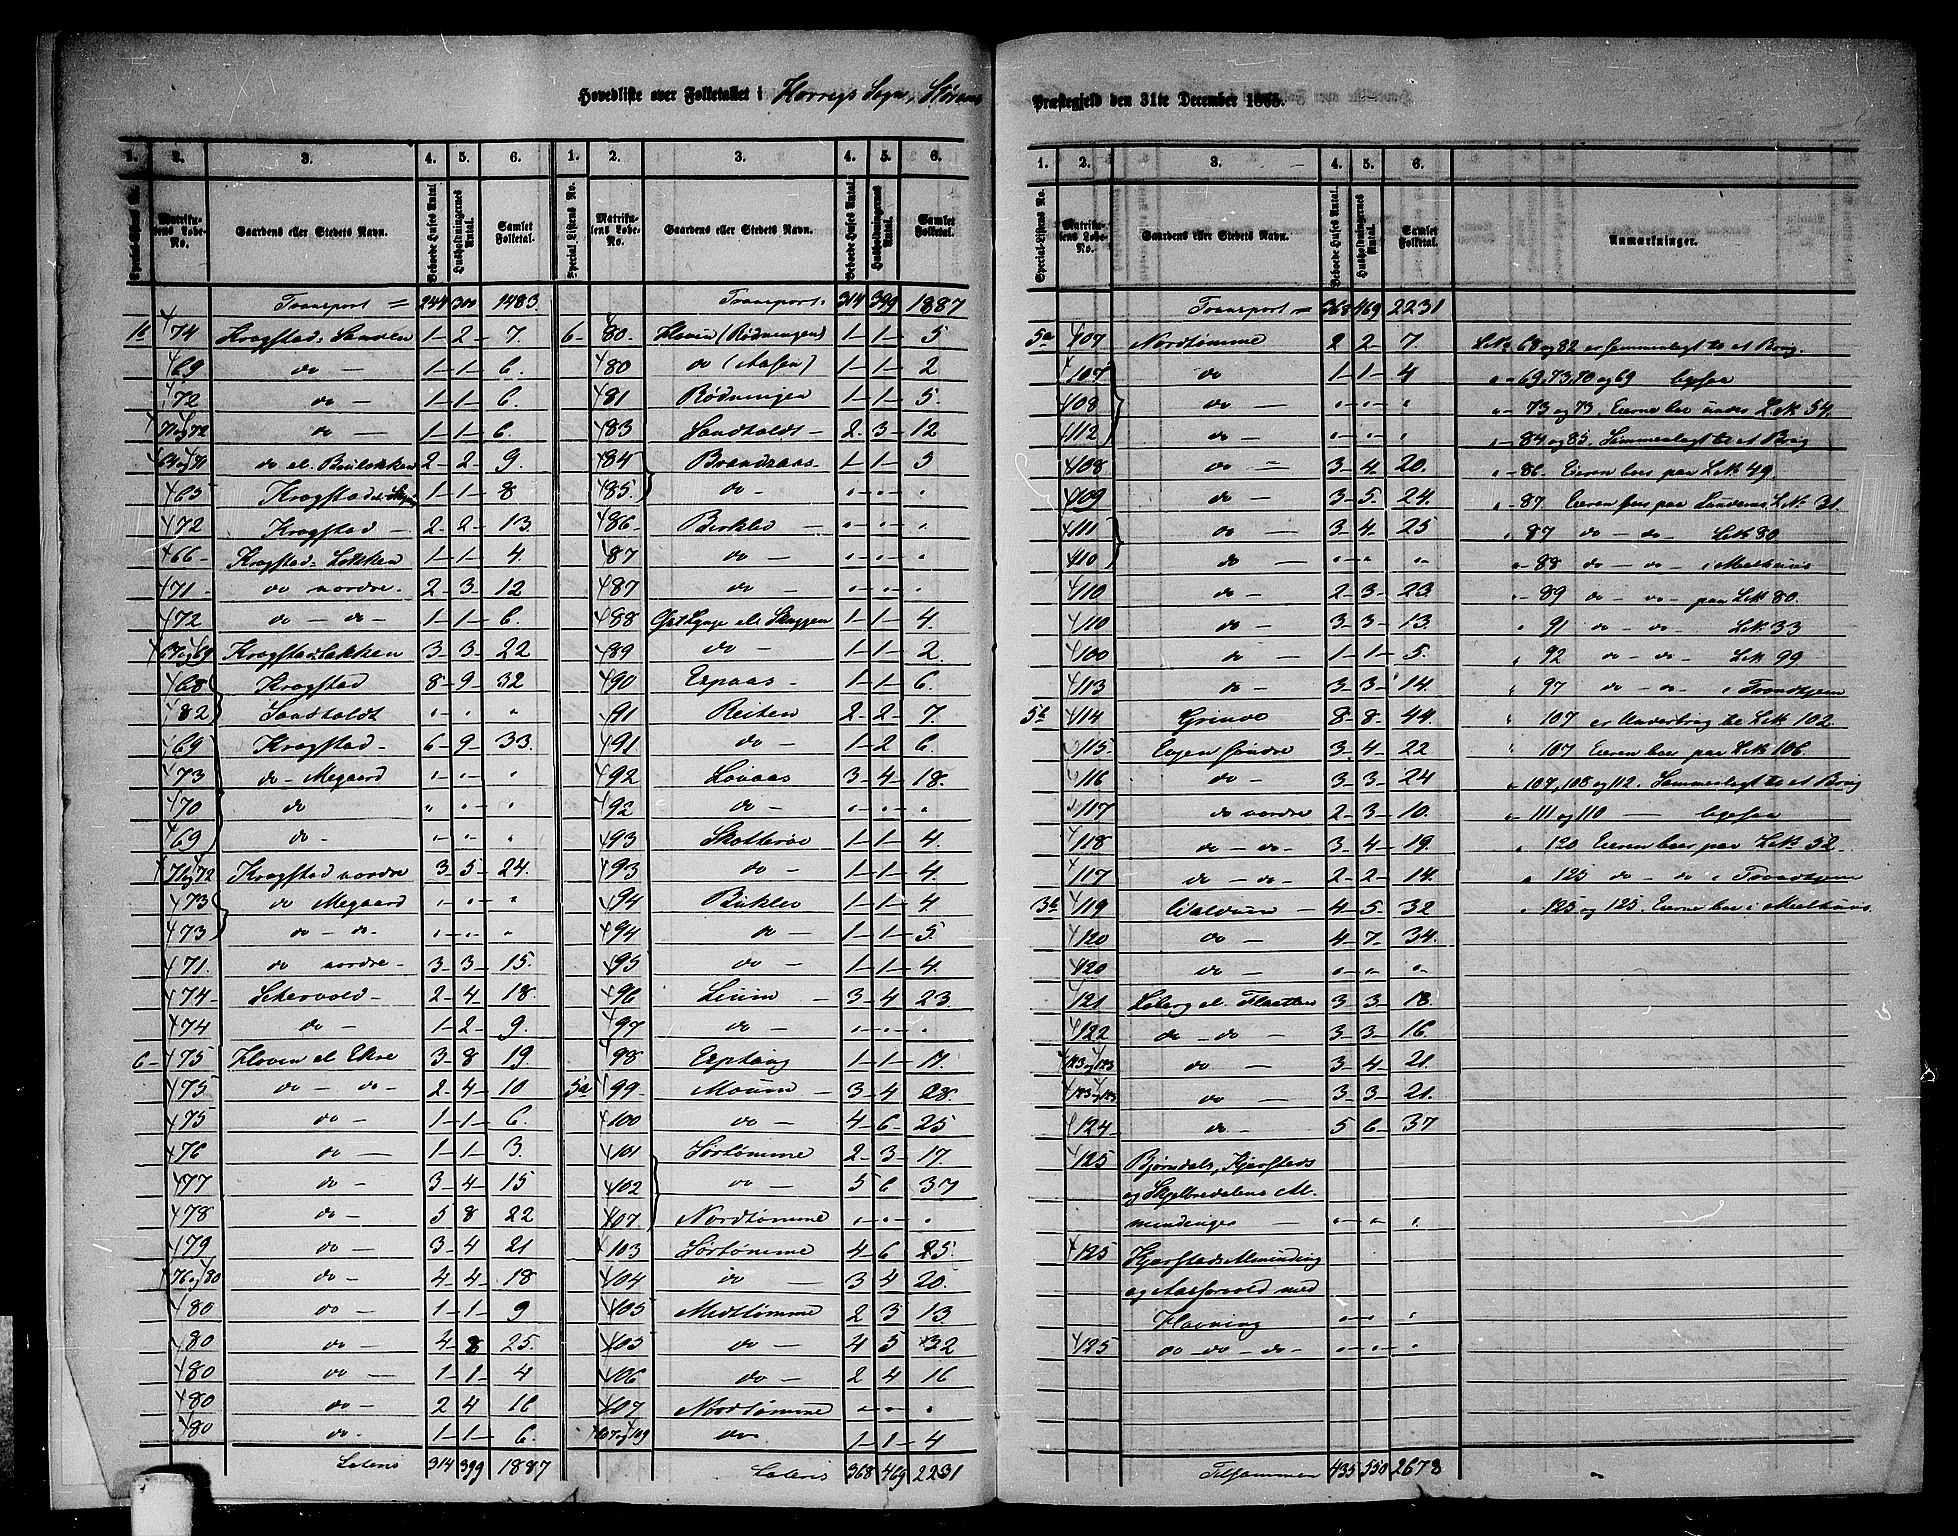 Hovedliste over Folketallet i Horrigs Sogn, Størens Præstegjeld den 31te December 1865.
1. 2. 3. 4. 5. 6. 1. 2. 3. 4. 5. 6.
Matrikulens Løbe-No. Gaardens eller Stedets Navn. Beboede Huses Antal. Husholdningernes Antal. Samlet Folketal. Special-Listens No. Matrikulens Løbe-No. Gaardens eller Stedets Navn. Beboede Huses Antal. Husholdningernes Antal. Samlet Folketal.
Transport = 244 310 1483
74 Kragstad 1 - 2 - 7.
69 do - 1 - 1 - 6.
72 do - 1 - 1 - 6.
71 og 72 do - 1 - 1 - 6.
do el. 2 - 2 - 9.
65 Kragstad 1 - 1 - 8
72 Kragstad - 2 - 2 - 13.
66 Kragstad Løkken 1 - 1 - 4.
71. do nordre - 2 - 3 - 12
72 do - do - 1 - 1 - 6.
67 og 69 Kragstadløkken 3 - 3 - 22
68 Kragstad 8 - 9 - 32
82 Sandholdt " - " - "
69 Kragstad - 6 - 9 - 33.
73 do - Megaard " - " - "
70 do " - " - "
69 do - " - " - "
71 og 72 Kragstad nordre 3 - 5 - 24.
73 do Megaard " - " - "
73 do - do - " - " - "
71. do nordre - 3 - 3 - 15.
74 - 2 - 4 - 18.
74 do - 1 - 2 - 9.
6 - 75 Hoven el Ekre 3 - 8 19.
75 do - do - 2 - 4 - 10
75 do - 1 - 1 - 6.
76 do - 1 - 1 - 3.
77 do - 3 - 4 - 15
78 do - 5 8 - 22
79 do - 3 - 4 21
76 og 80 do - 4 - 4 - 18
80 do - 1 - 1 - 9
80 do - 4 - 8 25.
80 do - 1 - 1 - 4
80 do - 2 4 - 16
80 do - 1 - 1 - 6.
Lateris 314 399 1887
Transport. 314 399 1887
6 - 80. Hoven (Rødningen) 1 - 1 - 5
80 do (Aasen) 1 - 1 - 2
81 Rødningen 1 - 1 - 5.
83 Sandholdt - 2 - 3 - 12
84 Brandraas 1 - 1 - 3
85. do - " - " - "
86 - - " - " - "
87 do - " - " - "
87 do - " - " - "
88 el. Skuggen 1 - 1 - 4.
89 do - 1 - 1 - 2.
90 Espaas - 1 - 1 - 6.
91 Reiten 2 - 2 - 7.
91 do - 1 - 2 6.
92 Lovaas 3 - 4 - 18.
92 do - " - " - "
93 1 - 1 - 4.
93 do - 1 - 1 - 4.
94 1 - 1 - 4
94 do - 1 - 1 - 5.
95 do - 1 - 1 - 4.
96 - 3 - 4 23.
97 do - " - " - "
98 1 - 1 - 11.
5a 99 3 - 4 28.
100 do - 4 - 6 - 25
101 Sørtømme 2 - 3 - 17.
102 do - 5 6 - 37
107 Nordtømme " - " - "
103 Sørtømme 4 - 6 25.
104 do - 3 4 - 20.
105 Midttømme 2 3 - 13.
105 do - 4 5 32
106 do - 2 4 - 16
107 Nordtømme " - " - "
107 og 109 do 1 - 1 - 4
Lateris 368 469 2231
1. 2. 3. 4. 5. 6.
Special-Listens No. Matrikulens Løbe-No. Gaardens eller Stedets Navn. Beboede Huses Antal. Husholdningernes Antal. Samlet Folketal. Anmærkninger.
Transport = 368 469 2231
5a 107 Nordtømme 2 2 - 7. L.N. 68 og 82 er sammenlagt til et Brug.
107 do 1 - 1 - 4 " - 69, 73, 70 og 69 ligesaa
108 do - " - " - " " - 73 og 73. Eierne boe under L.N. 54.
112 do - " - " - " " - 84 og 85. Sammenlagt til et Brug
108 do - 3 - 4 - 20. " - 86. Eieren boer paa L.N. 49.
109 do - 3 - 5 - 24. " - 87. Eieren boer paa L.N. 31.
111 do - 3 - 4 - 25 " 87 do - do - L.N. 80.
110 do - " - " - " " - 88 do - do - i Meelhuus
110 do - 2 - 3 - 23 " - 89 do - do - paa L.N. 80.
110 do - 3 - 3 - 13. " 91 do - do - L.N. 33
100 do - 1 - 1 - 5. " 92 do - do - L.N. 99
113 do - 3 - 3 - 14. " 97 do - do - i Trondhjem
5b 114 8 - 8 - 44. " 107 er Underbrug til L.N. 102.
115. Eggen søndre 3. 4 - 22 " 107 Eieren boer paa L.N. 106.
116 do - 3 - 3 - 24 " 107, 108 og 112. Sammenlagt til et Brug
117 do nordre 2 - 3 - 10. " 111 og 110 - ligesaa
118 do - do - 3 - 4 - 19. " 120 Eieren boer paa L.N. 32.
117 do - do - 2 - 2 - 14. " 125 do - do i Trondhjem
3b 119 - 4 - 5 - 32 " 125 og 125. Eierne boe i Meelhuus.
120 do - 4 - 7 - 34.
120 do - " - " - "
121 Loberg el. Flaatten 3 - 3 - 18.
122 do - do - 3 - 3 - 16.
123 og 123 do - 3 - 4 - 21.
123 og 123 do - 3 - 3 - 21.
124 do - 5 6 - 37
125 Bjørndals, Kjærstads
og Skjelbredalens Al-
mindinger - " - " - "
125 Kjærstads Alminding
og Aasforvold med
Havning " - " - "
125 do - do - do - " - " - "
Tilsammen 435 550 2678